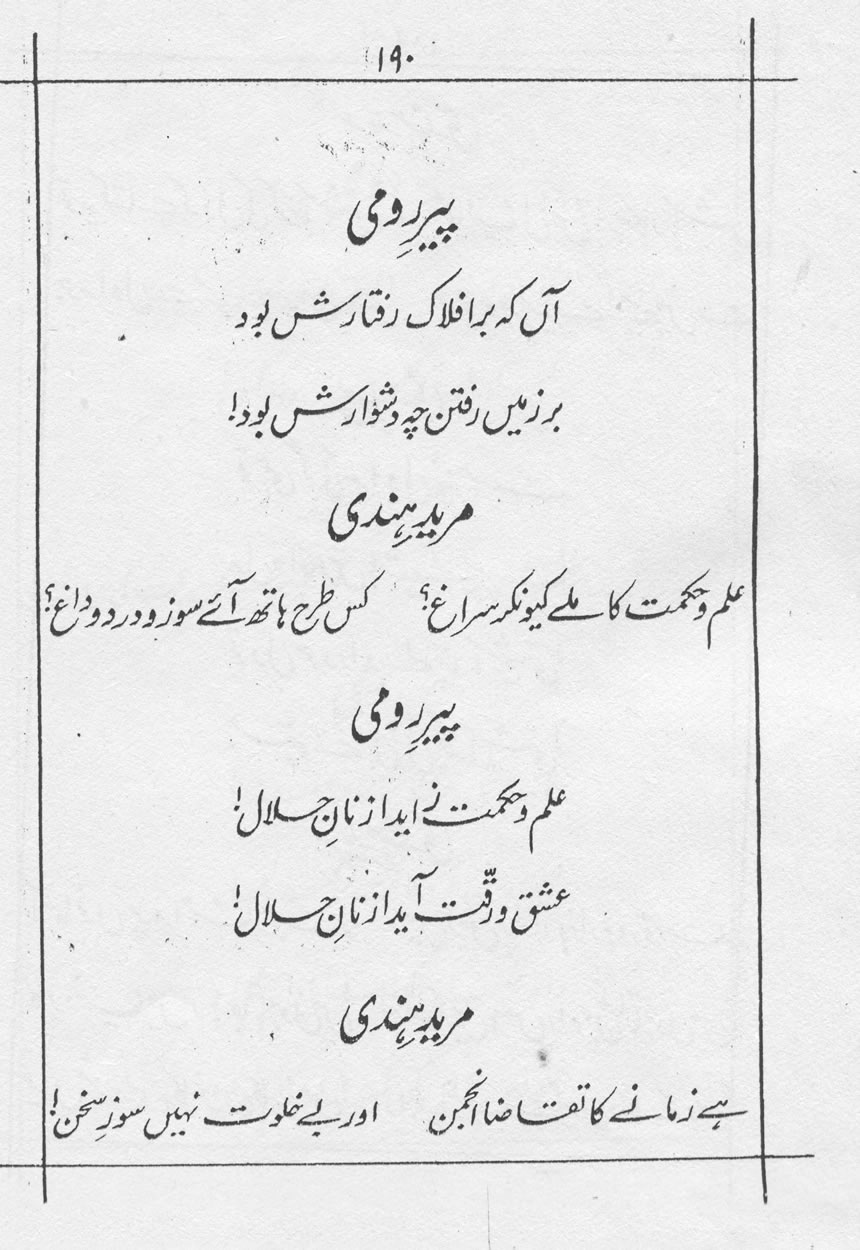 ۱۹۰
پیرِ رومی
آں کہ بر افلاک رفتارش بود
بر زمیں رفتن چہ دشوارش بود!
مریدِ ہندی
علم و حکمت کا ملے کیونکر سراغ؟ کس طرح ہاتھ آئے سوز و درد و داغ؟
پیرِ رومی
علم و حکمت زاید از نانِ حلال!
عشق و رقّت آید از نانِ حلال!
مریدِ ہندی
ہے زمانے کا تقاضا انجمن اور بے خلوت نہیں سوزِ سخن!